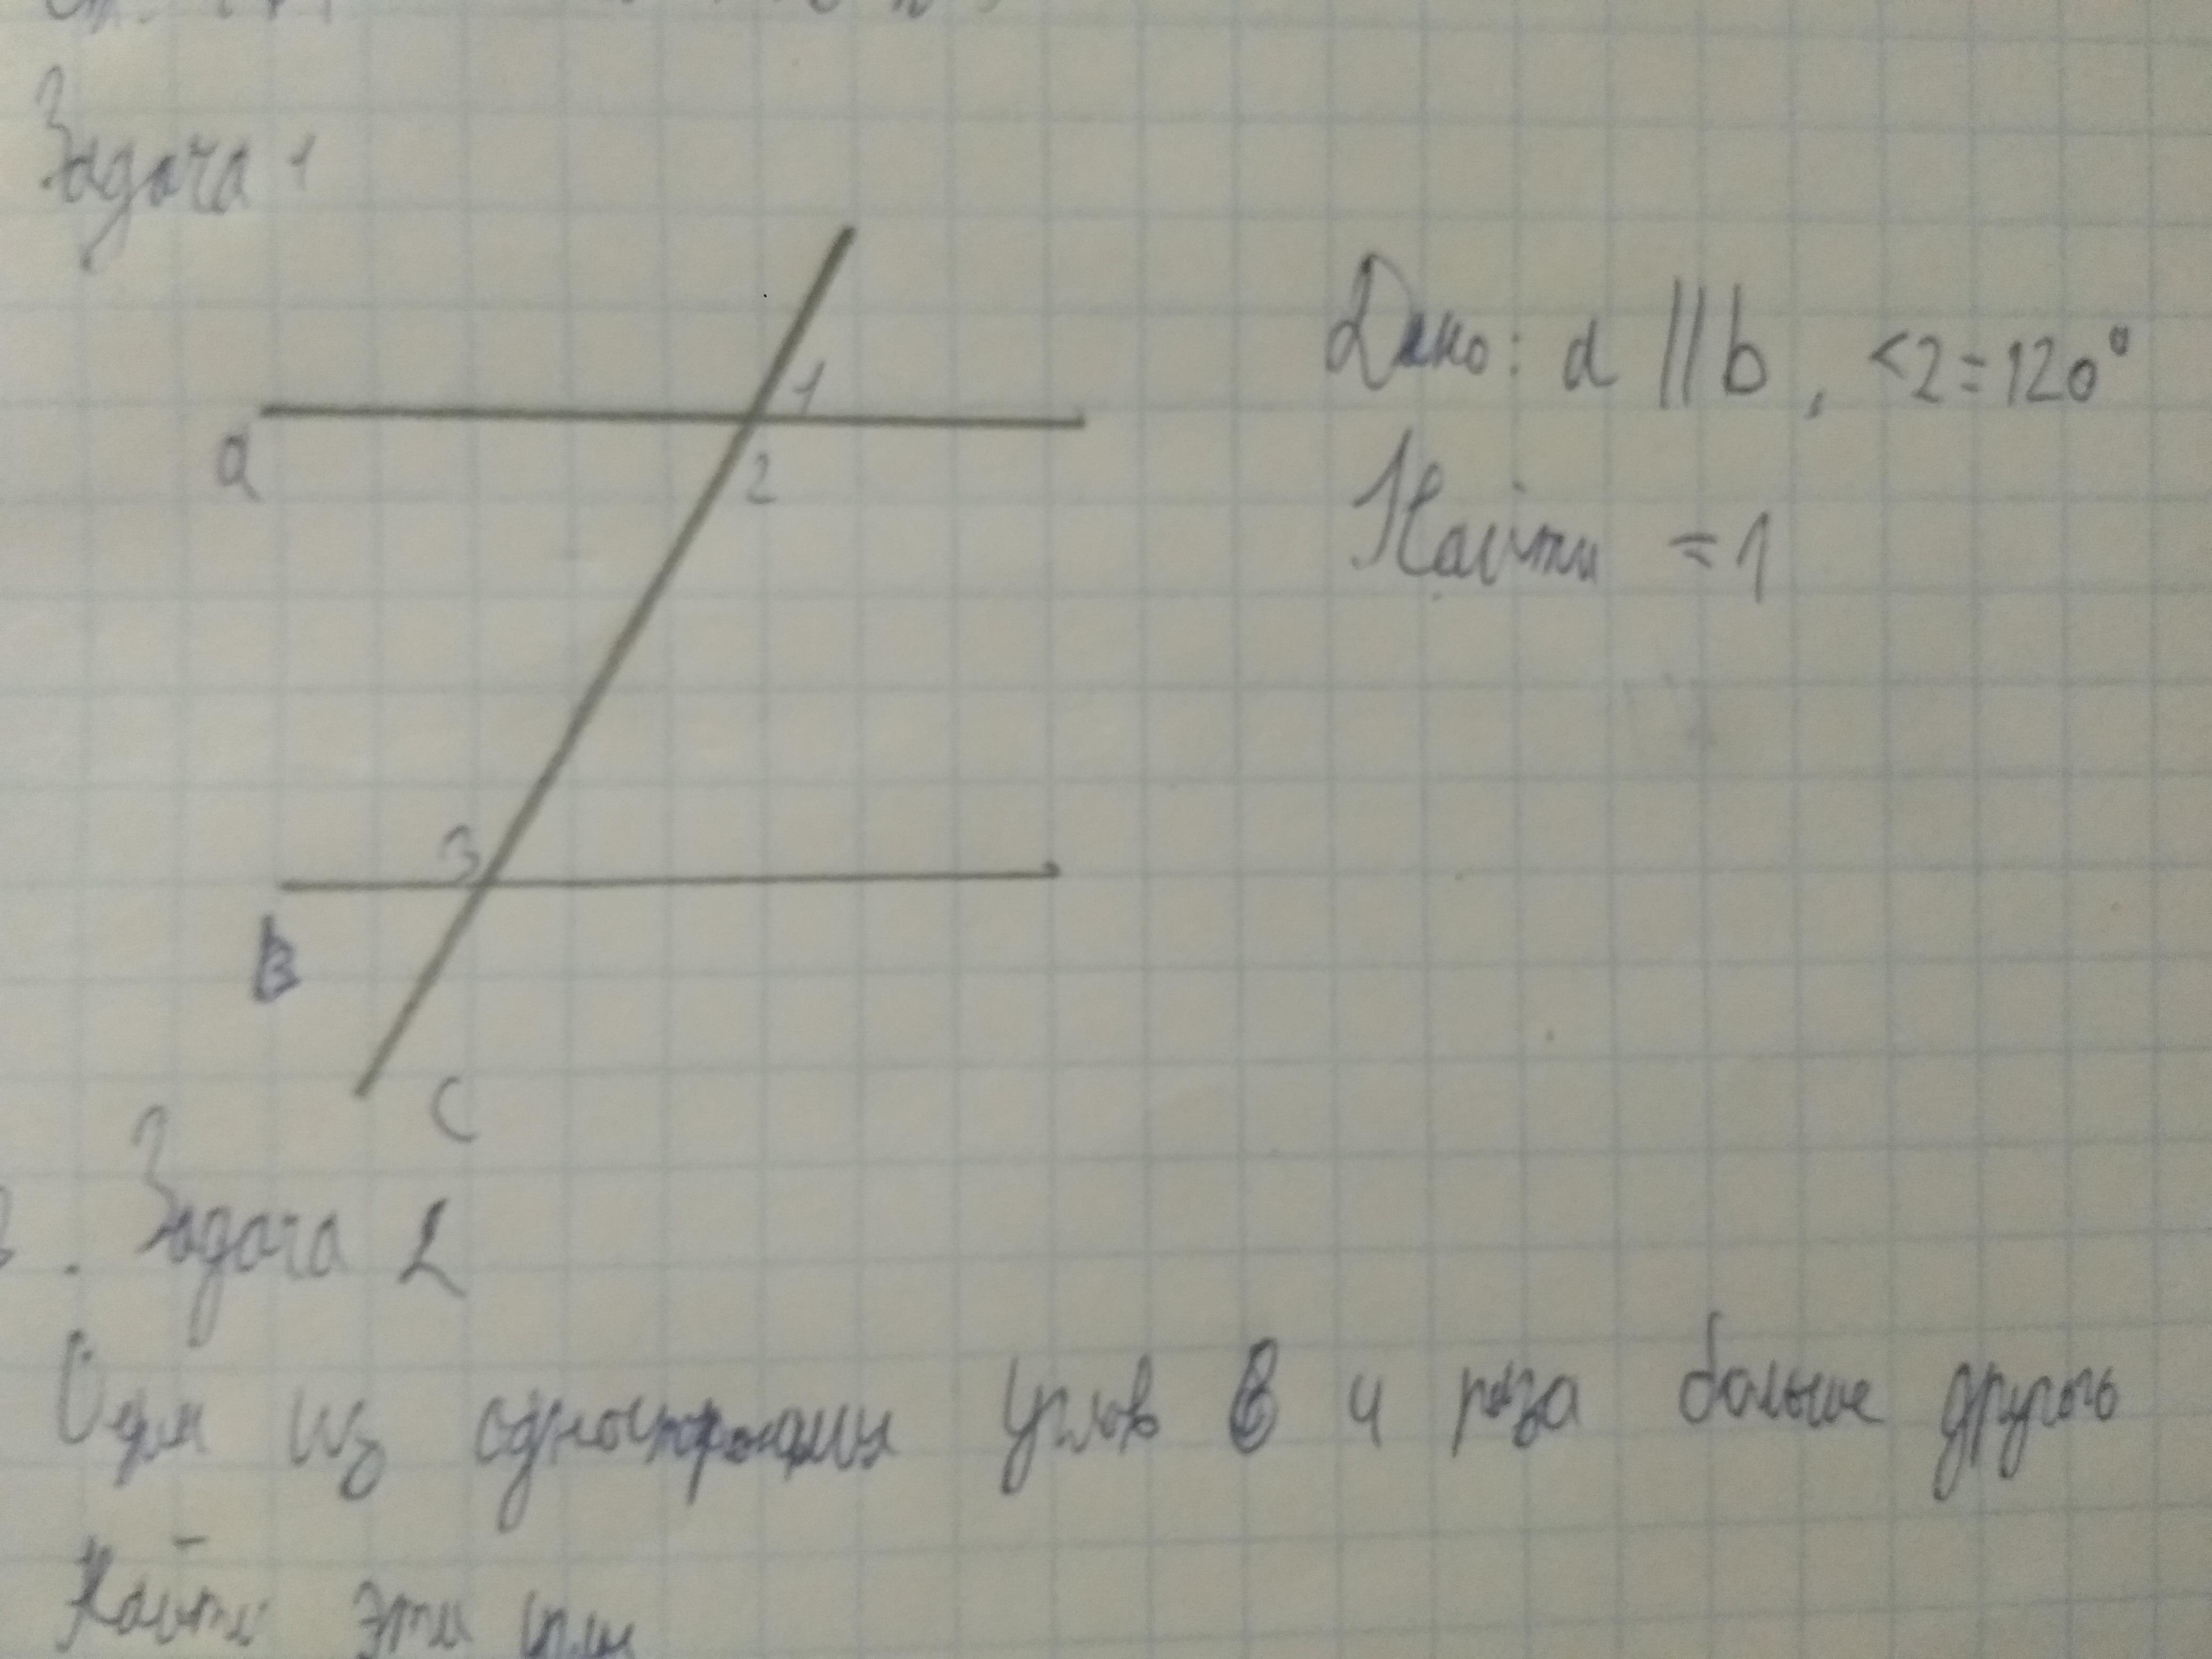 Задача 1
Дано: a || b, <2=120°
1
a
2
Найти =1
3
B
C
Задача 2
Один из односторонних углов в 4 раза больше другого
Найти эти углы